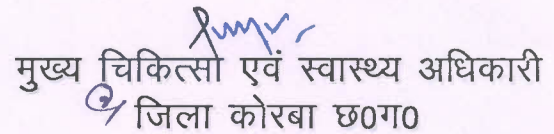 मुख्य चिकित्सा एवं स्वास्थ्य अधिकारी
जिला कोरबा छ0ग0